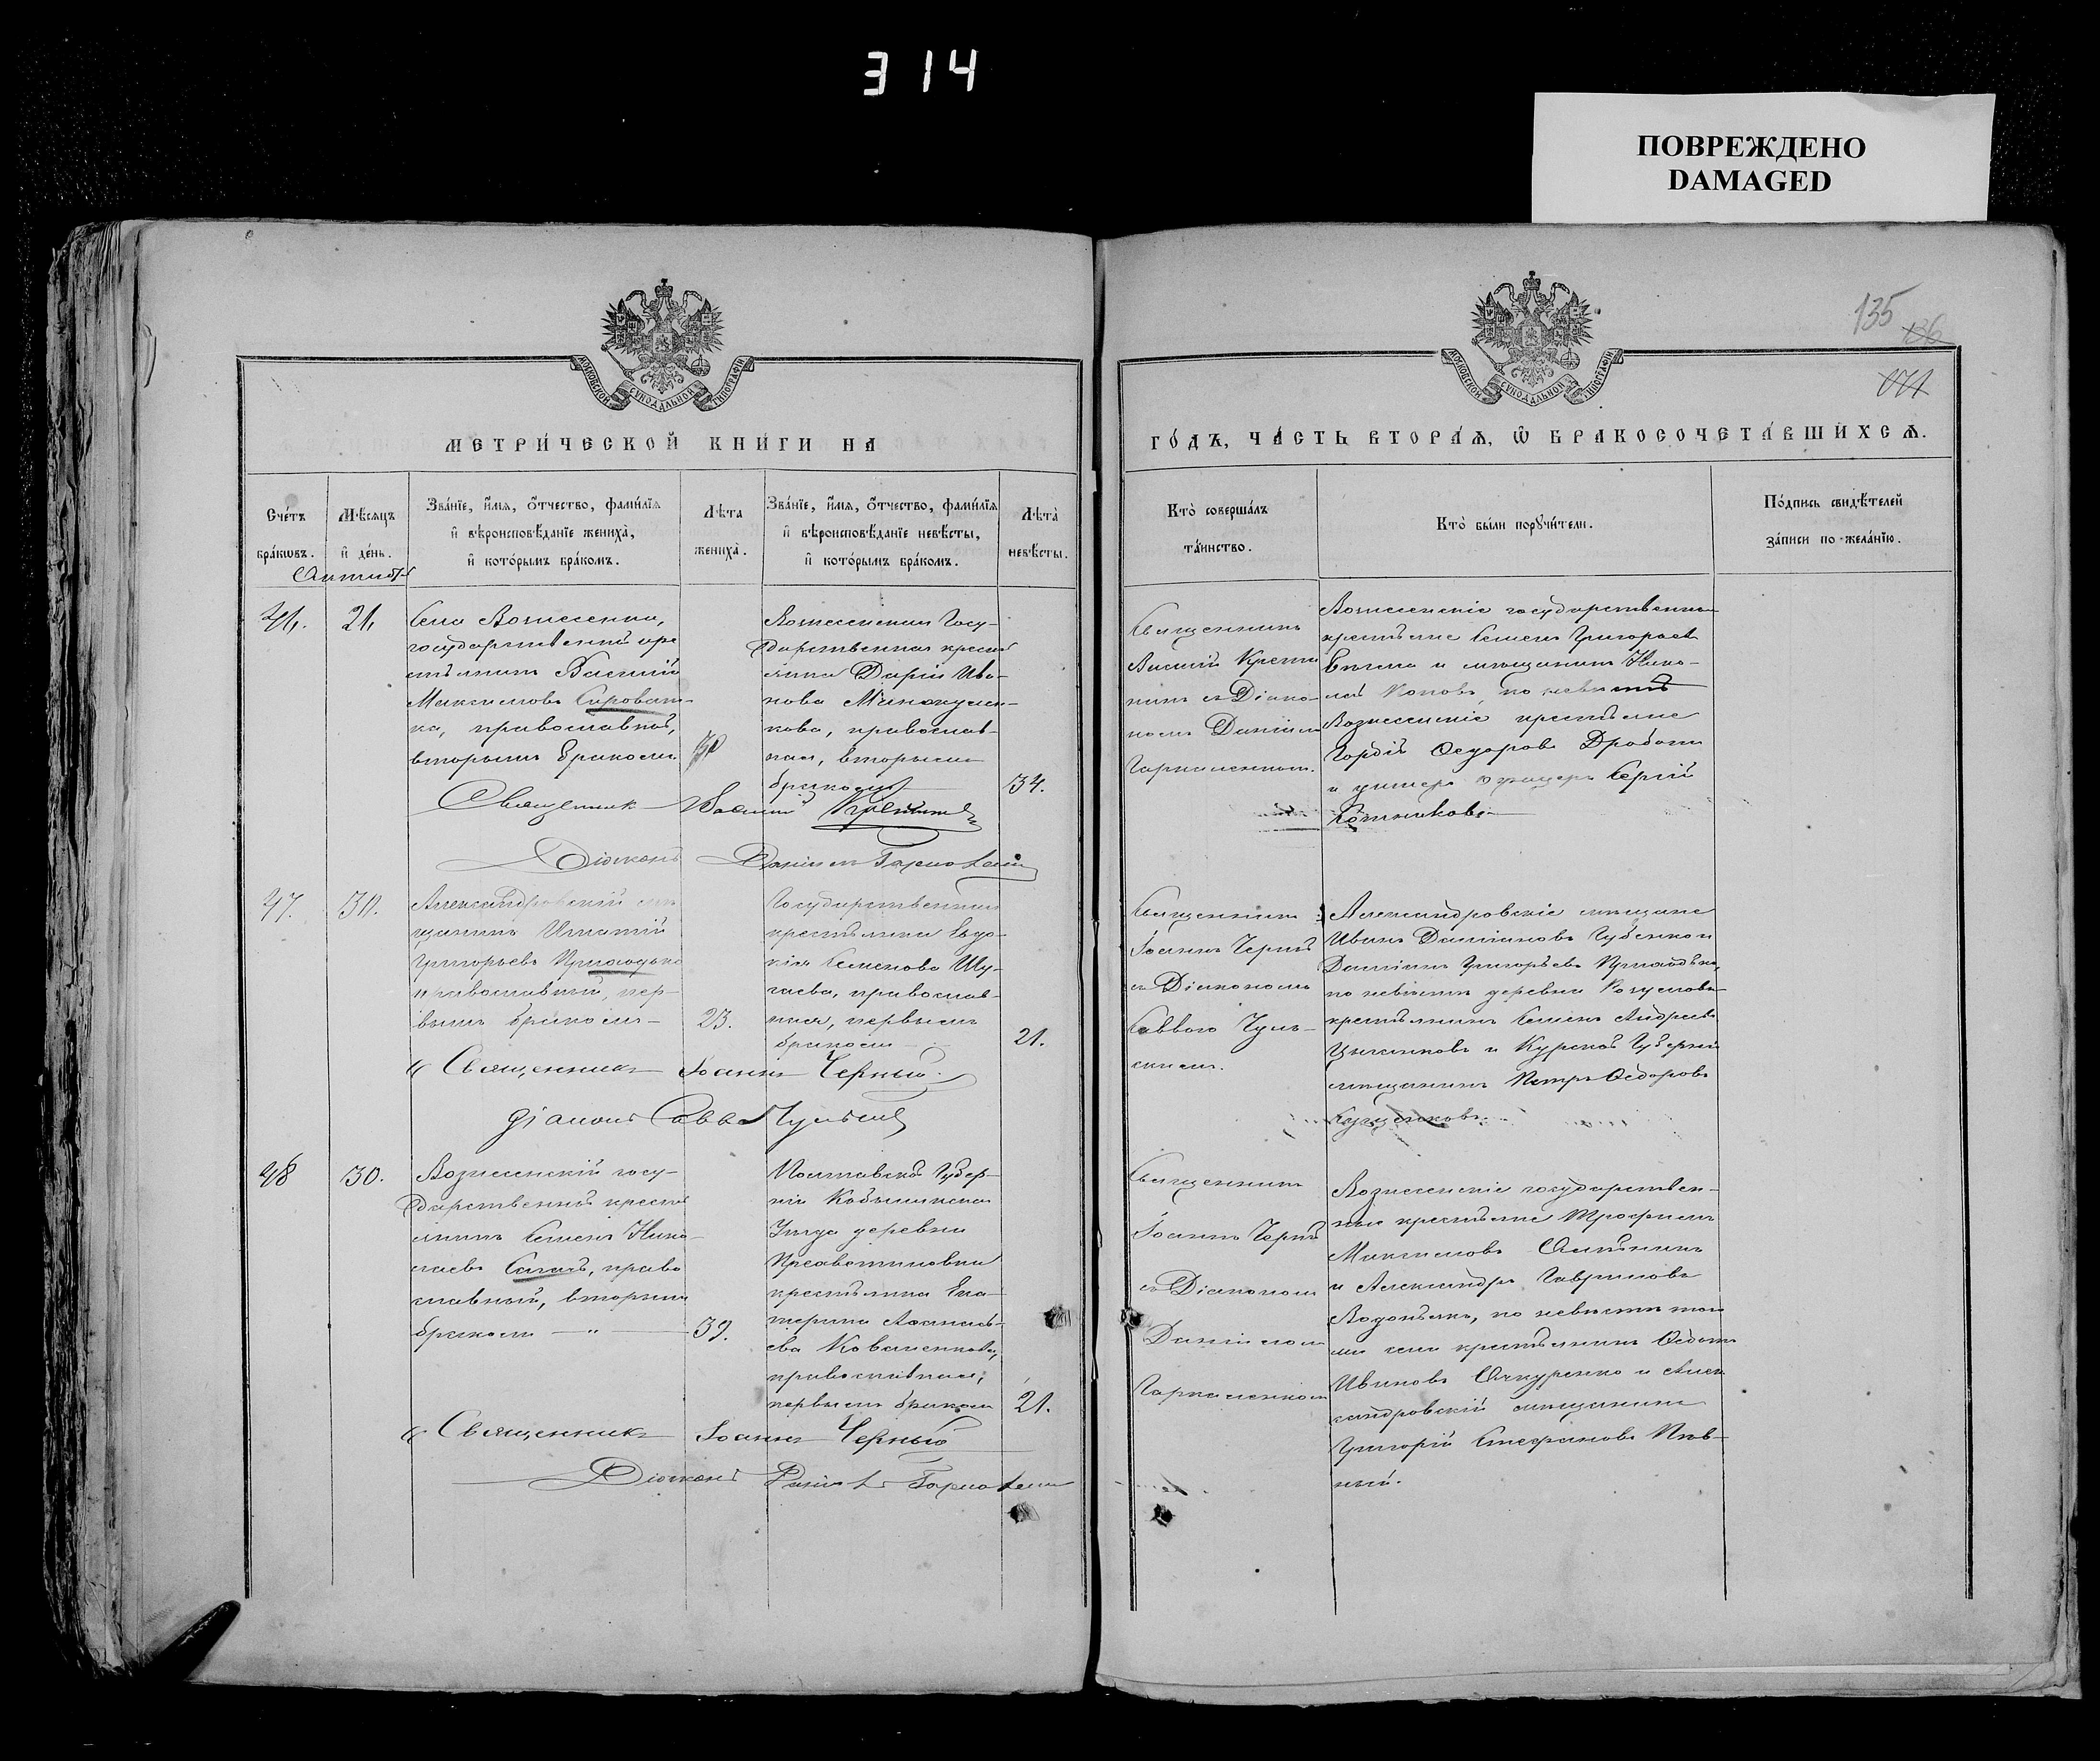 314
ПОВРЕЖДЕНО
DAMAGED
135
136
МОСКОВСКОЙ СѴНОДАЛЬНОЙ ТИПОГРАФІИ
МОСКОВСКОЙ СѴНОДАЛЬНОЙ ТИПОГРАФІИ
МЕТРИ́ЧЕСКОЙ КНИ́ГИ НА
ГО́ДЪ, ЧА́СТЬ ВТОРА́Ѧ, Ѡ҆ БРАКОСОЧЕТА́ВШИХСѦ.
Сче́тъ
бра́кѡвъ.
Мѣ́сѧцъ
и҆ де́нь.
Зва́нїе, и҆́мѧ, ѻ҆́тчество, фами́лїѧ
и҆ вѣроисповѣ́данїе жениха̀,
и҆ кото́рымъ бра́комъ.
Лѣ́та
жениха̀.
Зва́нїе, и҆́мѧ, ѻ҆́тчество, фами́лїѧ
и҆ вѣроисповѣ́данїе невѣ́сты,
и҆ кото́рымъ бра́комъ.
Лѣ́та
невѣ́сты.
Кто̀ соверша́лъ
та́инство.
Кто̀ бы́ли порꙋчи́тели.
По́дпись свидѣ́телей
за́писи по жела́нїю.
Октябр
46.
21
Села Вознесенки,
государственный кре
стьянинъ Василій
Максимовъ Сыроват-
ка, православный,
вторымъ бракомъ
Вознесенская Госу-
дарственная кресть
янка Дарія Ива-
нова
кова, православ-
ная, вторымъ
бракомъ
34.
Священникъ
Василій Крети
нинъ съ Діако-
номъ Даніилъ
Гармаленкомъ.
Вознесенскіе государственные
крестьяне Семенъ Григорьевъ
и мѣщанинъ Нико-
лай Поповъ, по невѣстѣ
Вознесенскіе крестьяне
Гордій Ѳедоровъ Дробот
и унтеръ офицеръ Сергій
Священникъ Василій
Діаконъ Даніилъ
47.
30.
Александровскій мѣ
щанинъ Игнатій
Григорьевъ Примодько
православный, пер-
вымъ бракомъ
23.
Государственная
крестьянка Евдо-
кія Семенова Шу-
гаева, православ-
ная, первымъ
бракомъ
21.
Священникъ
Іоаннъ Черный
съ Діакономъ
Саввою Чуль-
скимъ.
Александровскіе мѣщане
Иванъ Даміановъ Губенко и
Даміанъ Григорьевъ
по невѣстѣ деревни
крестьянинъ Семенъ Андреевъ
Цыганковъ и Курской Губерніи
мѣщанинъ Петръ Ѳедоровъ
Священникъ Іоаннъ Черный
Діаконъ Савва
48
30.
Вознесенскій госу-
дарственный кресть
янинъ Семенъ Нико-
лаевъ Сагачъ, право
славный, вторымъ
бракомъ — " —
39.
Полтавской Губер-
ніи Кобылякскаго
Уѣзда деревни
крестьянка Ека-
терина
ева Коваленкова,
православная,
первымъ бракомъ
21.
Священникъ
Іоаннъ Черный
съ Діакономъ
Даніиломъ
Гармаленкомъ
Вознесенскіе государствен-
ные крестьяне Трофимъ
Максимовъ Олѣйникъ
и Александръ Гавриловъ
по невѣстѣ того
же села крестьянинъ Ѳедотъ
Ивановъ и Алек
сандровскій мѣщанинъ
Григорій Стефановъ Пів-
ный.
Священникъ Іоаннъ Черный
Діаконъ Даніилъ